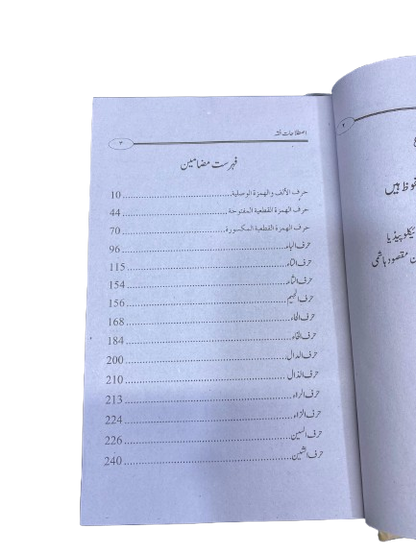 اصطلاحات فقہ
۳
فہرست مضامین
حرف الألف والهمزة الوصلية 10
حرف الهمزة القطعية المفتوحة 44
حرف الهمزة القطعية المكسورة 70
حرف الباء 96
حرف التاء 115
حرف الثاء 154
حرف الجيم 156
حرف الحاء 168
حرف الخاء 184
حرف الدال 200
حرف الذال 210
حرف الراء 213
حرف الزاء 224
حرف السين 226
حرف الشين 240
۲
محفوظ ہیں
مقصود ہاشمی